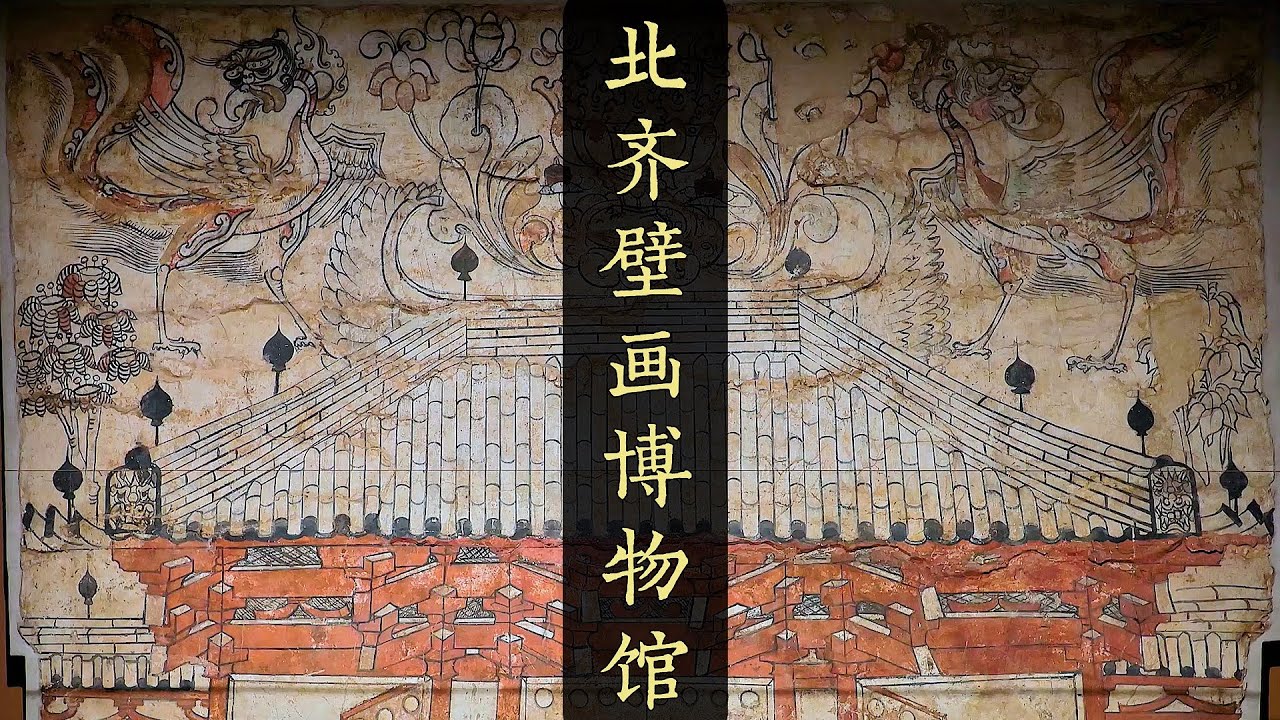 北齐壁画博物馆